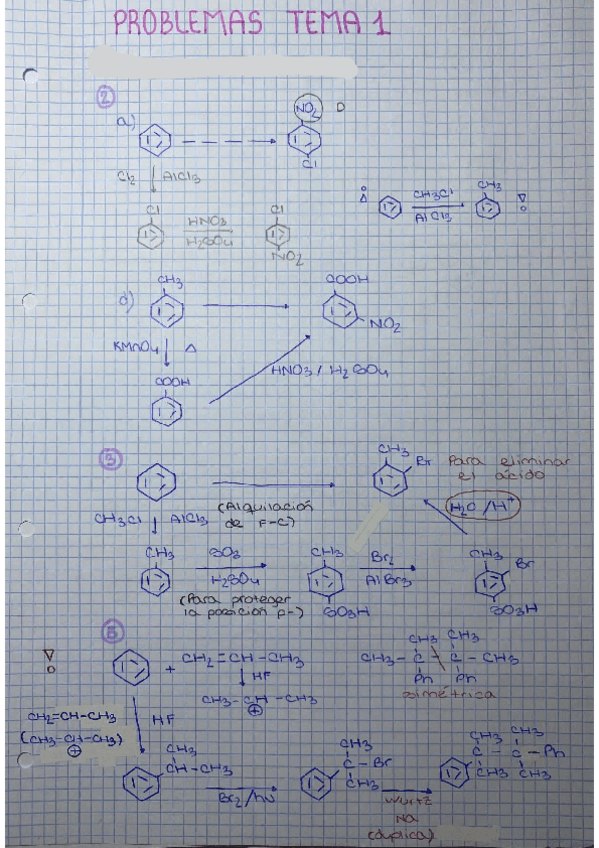 PROBLEMAS TEMA 1
2
a)
NO2
Cl
Cl2 AlCl3
Cl HNO3 H2SO4 Cl NO2
CH3Cl AlCl3 CH3
CH3 COOH
d)
NO2
KMnO4 Δ
COOH
HNO3 / H2SO4
3
CH3 Br
Para eliminar
el ácido
(Alquilación
de F-C)
H2O /H+
CH3Cl AlCl3
CH3 SO3 H2SO4 CH3 SO3H Br2 AlBr3 CH3 Br SO3H
(Para proteger
la posición p-)
5
+ CH2=CH-CH3
HF
CH3-CH-CH3
+
CH3 CH3
CH3-C-C-CH3
Ph Ph
simétrica
CH2=CH-CH3 HF
(CH3-CH-CH3)
+
CH3
CH-CH3
Br2/hν
CH3
C-Br
CH3
Wurtz
Na
(duplica)
CH3 CH3
C - C-Ph
CH3 CH3